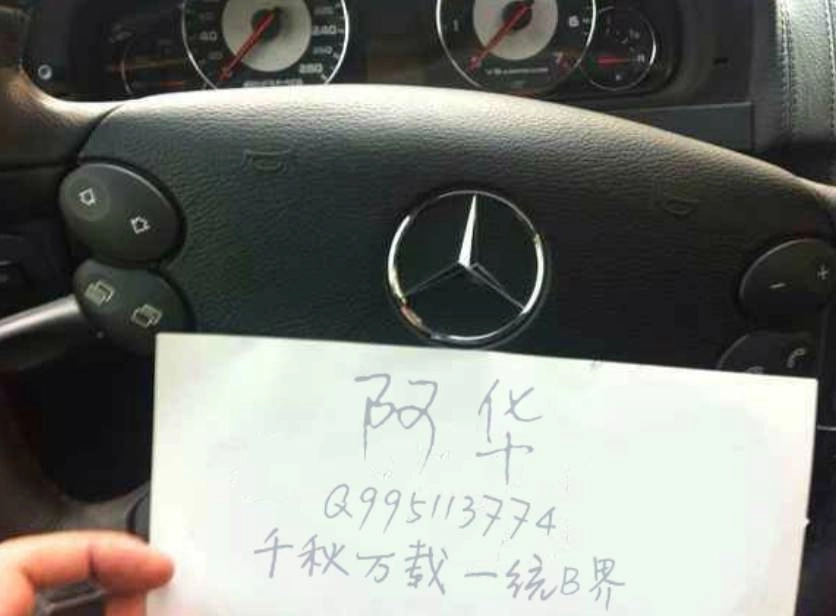 阿华
Q995113774
千秋万载一统B界